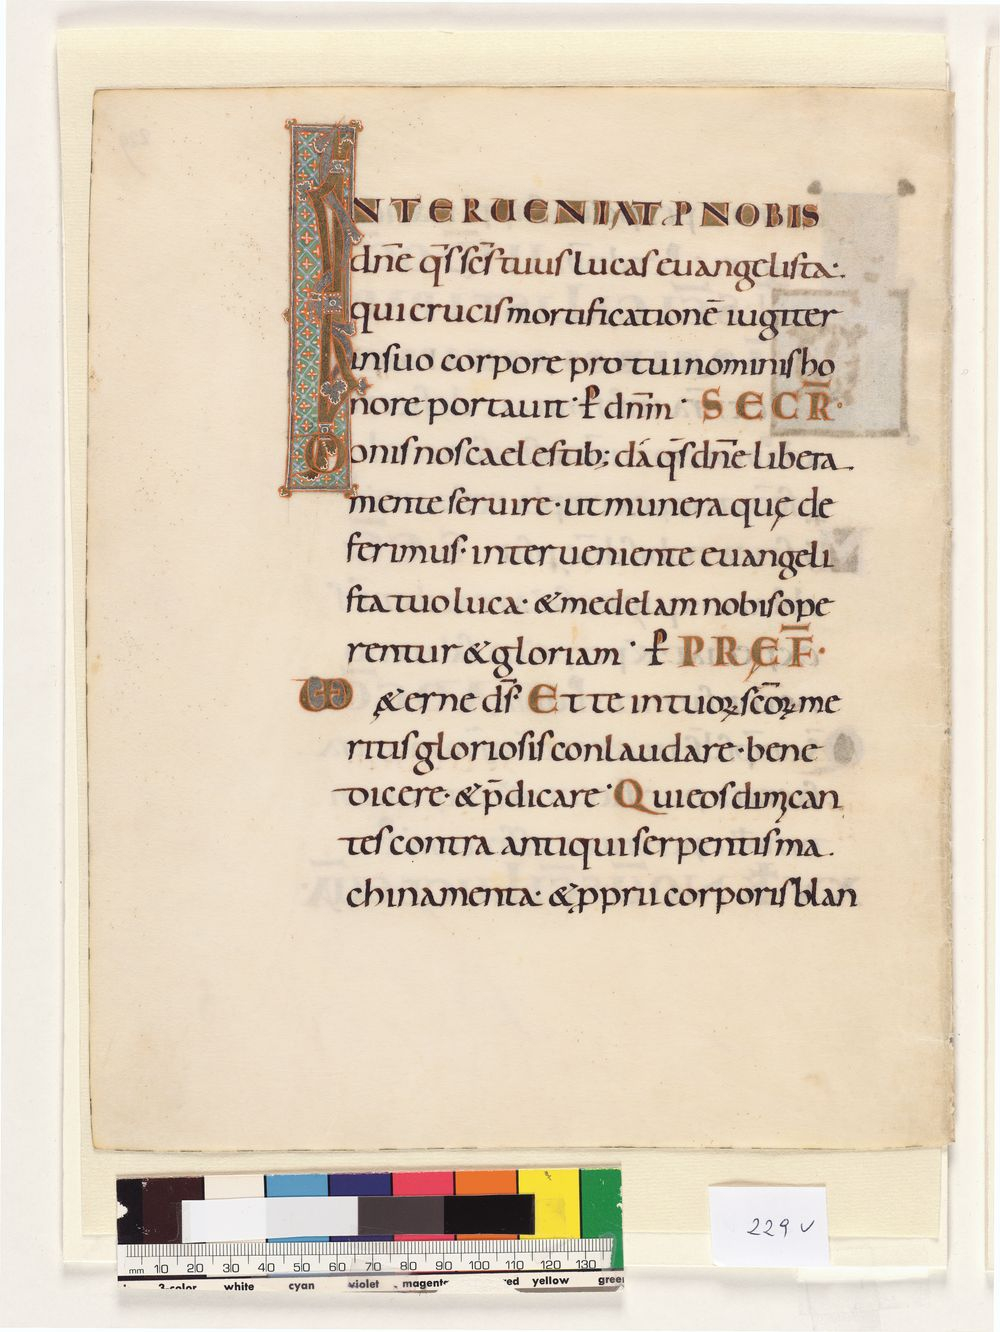 INTERUENIAT P NOBIS
dn̄e q̄s sc̄s tuus lucas euangelista·
qui crucis mortificationē iugiter
in suo corpore pro tui nominis ho
nore portauit· ꝑ dn̄m· SECR̄·
Donis nos caelestib; dá q̄s dn̄e libera
mente seruire· ut munera quę de
ferimus· interueniente euangeli
sta tuo luca· & medelam nobis ope
rentur & gloriam· ꝑ PREF̄·
UD &erne ds̄· Et te in tuoꝝ sc̄oꝝ me
ritis gloriosis conlaudare· bene
dicere· & p̄dicare· Qui eos dimican
tes contra antiqui serpentis ma
chinamenta· & ꝓprii corporis blan
229 v
mm 10 20 30 40 50 60 70 80 90 100 110 120 130
3-color white cyan violet magenta red yellow green